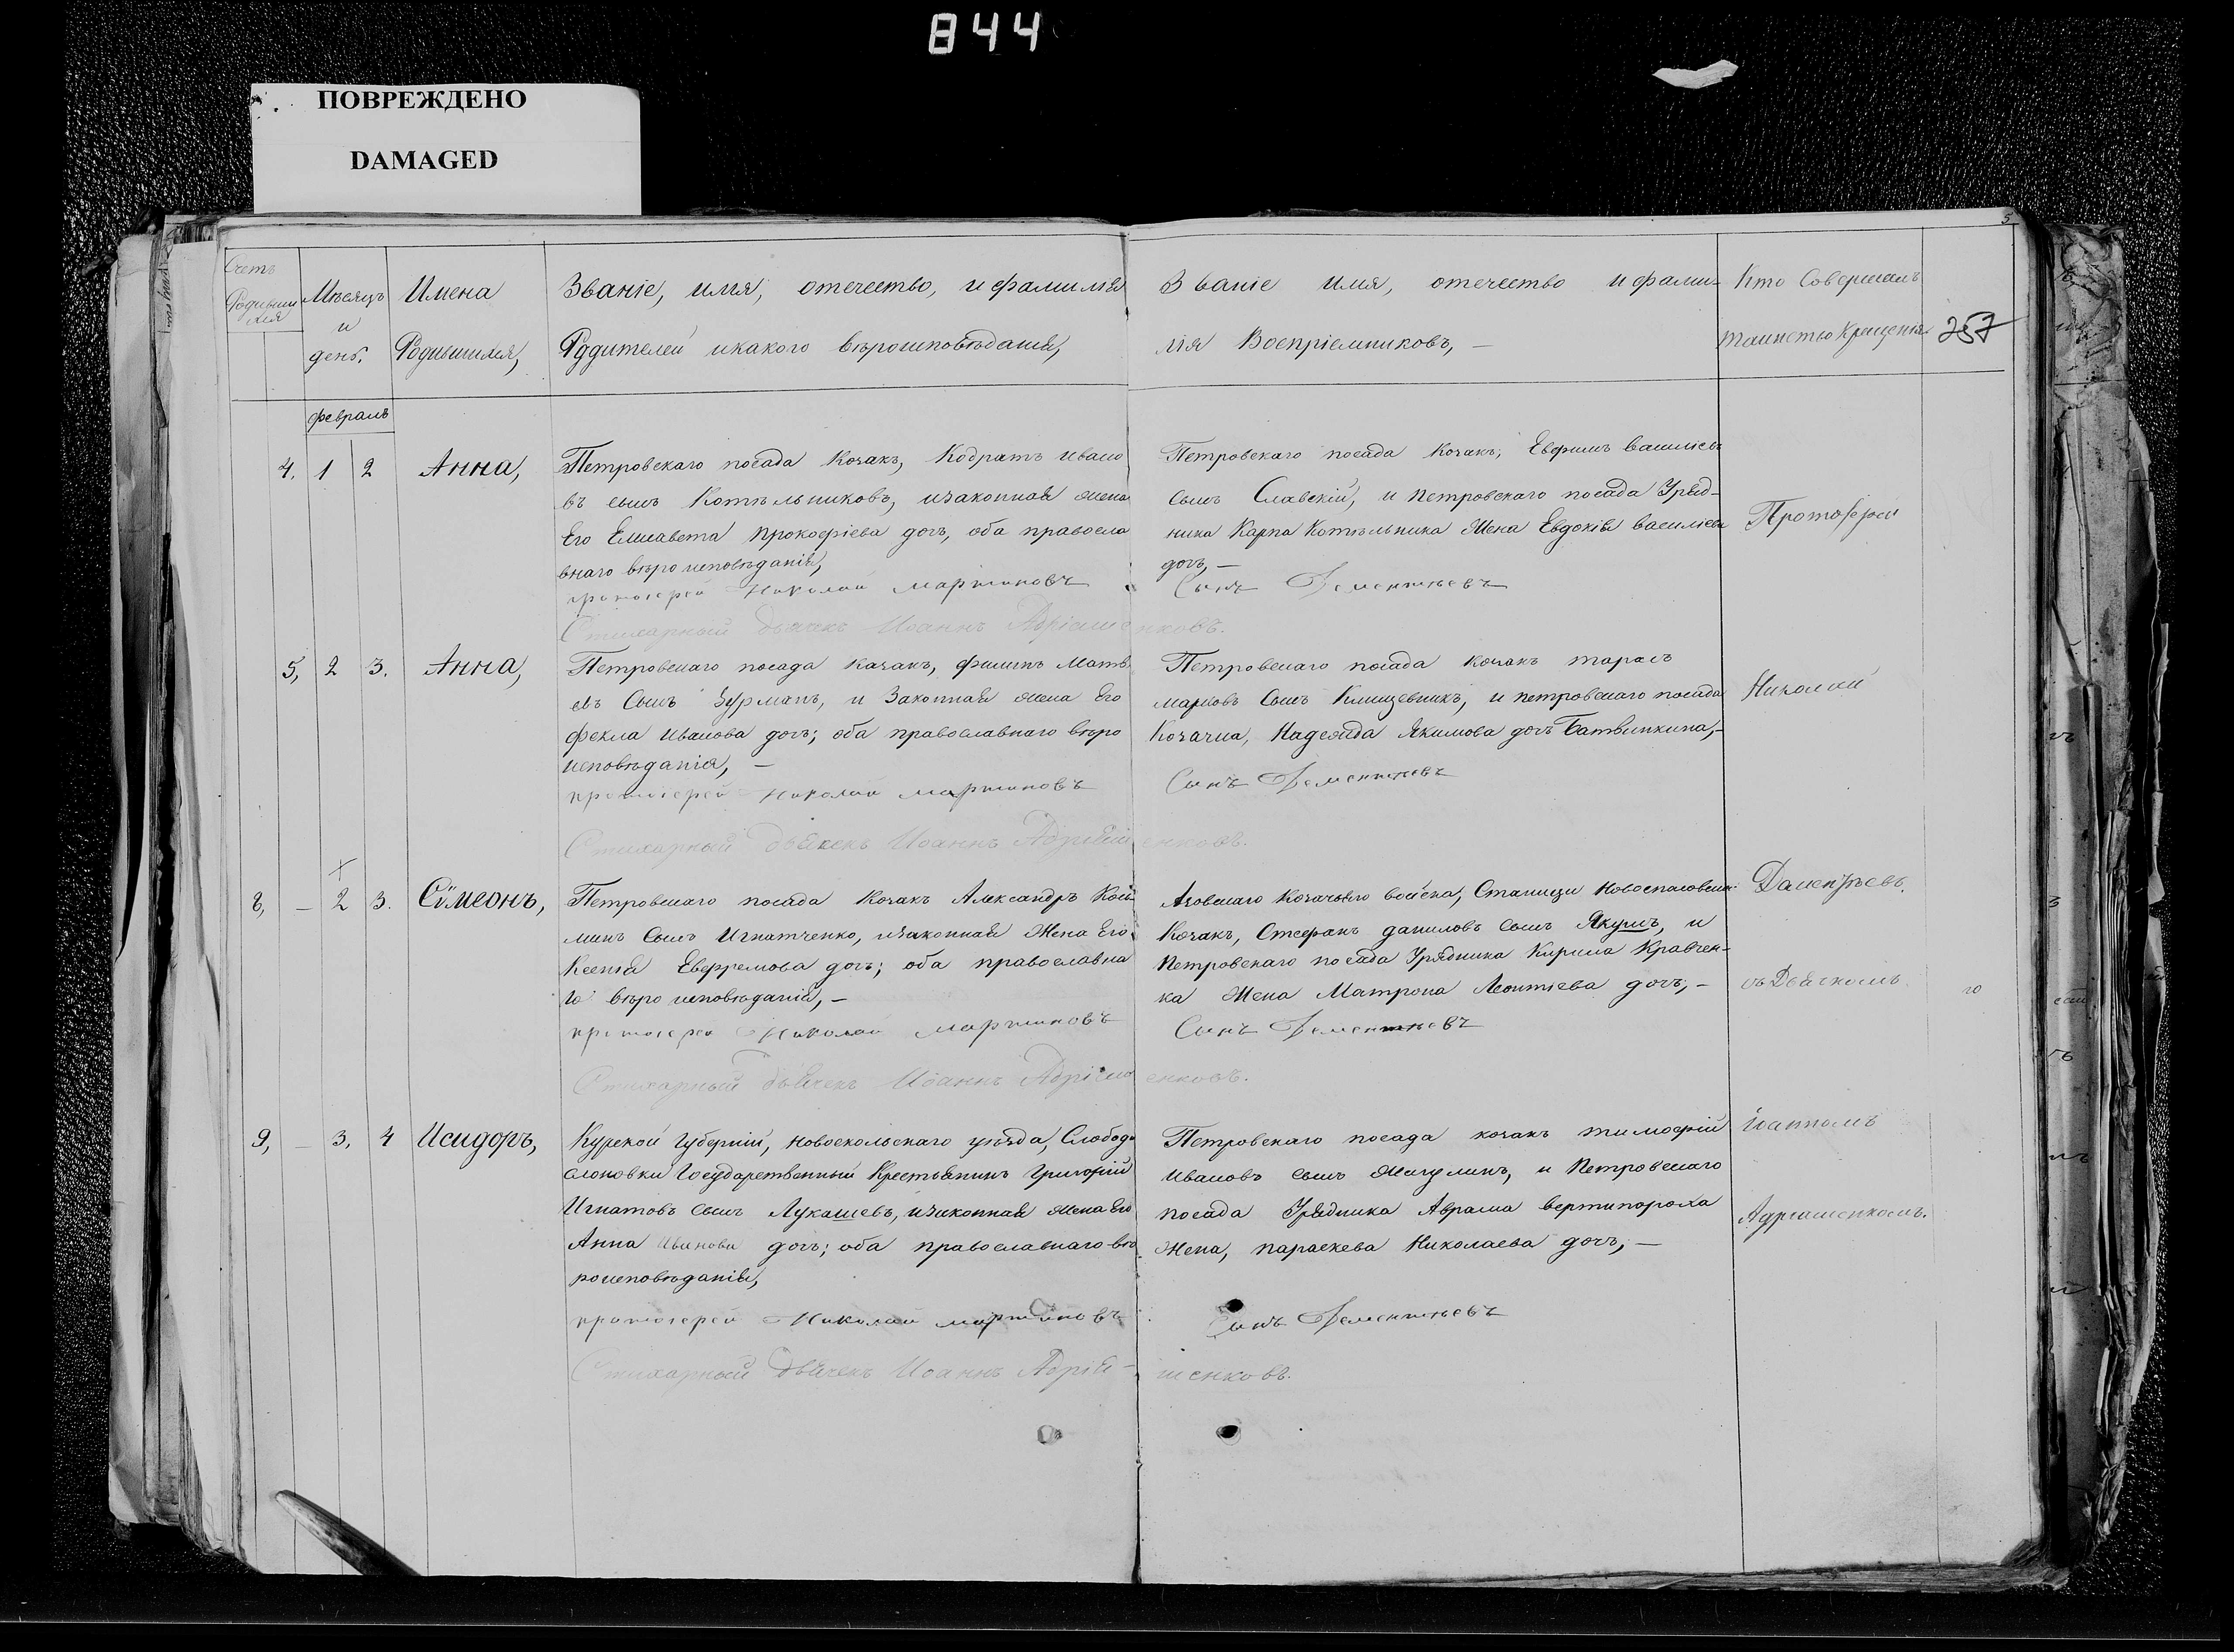 844
ПОВРЕЖДЕНО
DAMAGED
3
Счетъ
Родивших
ся
Мѣсяцъ
и
день.
Имена
Родившихся,
Званіе, имя, отечество, и фамилія
Родителей и какого вѣроисповѣданія,
Званіе имя, отечество и фами-
лія Воспріемниковъ, —
Кто Совершалъ
таинство Крещенія
257
февраль
4, 1 2 Анна,
Петровскаго посада Козакъ, Кодратъ ивано
въ сынъ Котѣльниковъ, изаконная жена
Его Елисавета Прокофіева дочь, оба правосла
внаго вѣро исповѣданія,
протоіерей Николай Мартиновъ
Стихарный дьячекъ Иоаннъ Адріяше
Петровскаго посада Козакъ, Евфимъ василіевъ
сынъ Славскій, и петровскаго посада Уряд-
ника Карпа Котѣльника Жена Евдокія василіева
дочь, —
Сынъ Дементьевъ
нковъ.
Протоіерей
5, 2 3. Анна,
Петровскаго посада казакъ, филипъ Матве
евъ Сынъ Зурманъ, и Законная жена Его
фекла иванова дочь; оба православнаго вѣро
исповѣданія, —
протоіерей Николай Мартиновъ
Стихарный дьячекъ Иоаннъ Адрія
Петровскаго посада козакъ тарасъ
марковъ Сынъ и петровскаго посада
Козачка, Надежда Якимова дочь Батвинкина, —
Сынъ Дементьевъ
енковъ.
Николай
8, — 2 3. Сѵмеонъ,
Петровскаго посада Козакъ Александръ Козь
минъ Сынъ Игнатченко, изаконная Жена Его
Ксенія Евфремова дочь; оба православна
го вѣро исповѣданія, —
протоіерей Николай Мартиновъ
Стихарный дьячекъ Иоаннъ Адріяш
Азовскаго Козачьяго войска, Станицы Новоспасовской
Козакъ, Стефанъ даниловъ сынъ Якушъ, и
Петровскаго посада Урядника Кирила Кравчен-
ка Жена Матрона Леонтіева дочь, —
Сынъ Дементьевъ
енковъ.
Дементьевъ
съ Дьячкомъ
9, — 3. 4 Исидоръ,
Курской Губерніи, новоскольскаго уѣзда, Слободы
слоновки Государственный Крестьянинъ Григорій
Игнатовъ сынъ Лукашевъ, изаконная жена Его
Анна Иванова дочь; оба православнаго вѣ
роисповѣданія,
протоіерей Николай Мартиновъ
Стихарный дьячекъ Иоаннъ Адрія-
Петровскаго посада козакъ тимофій
ивановъ сынъ и Петровскаго
посада Урядника Аврама вертипороха
Жена, параскева Николаева дочь, —
Сынъ Дементьевъ
шенковъ.
Іоанномъ
Адріашенкомъ.